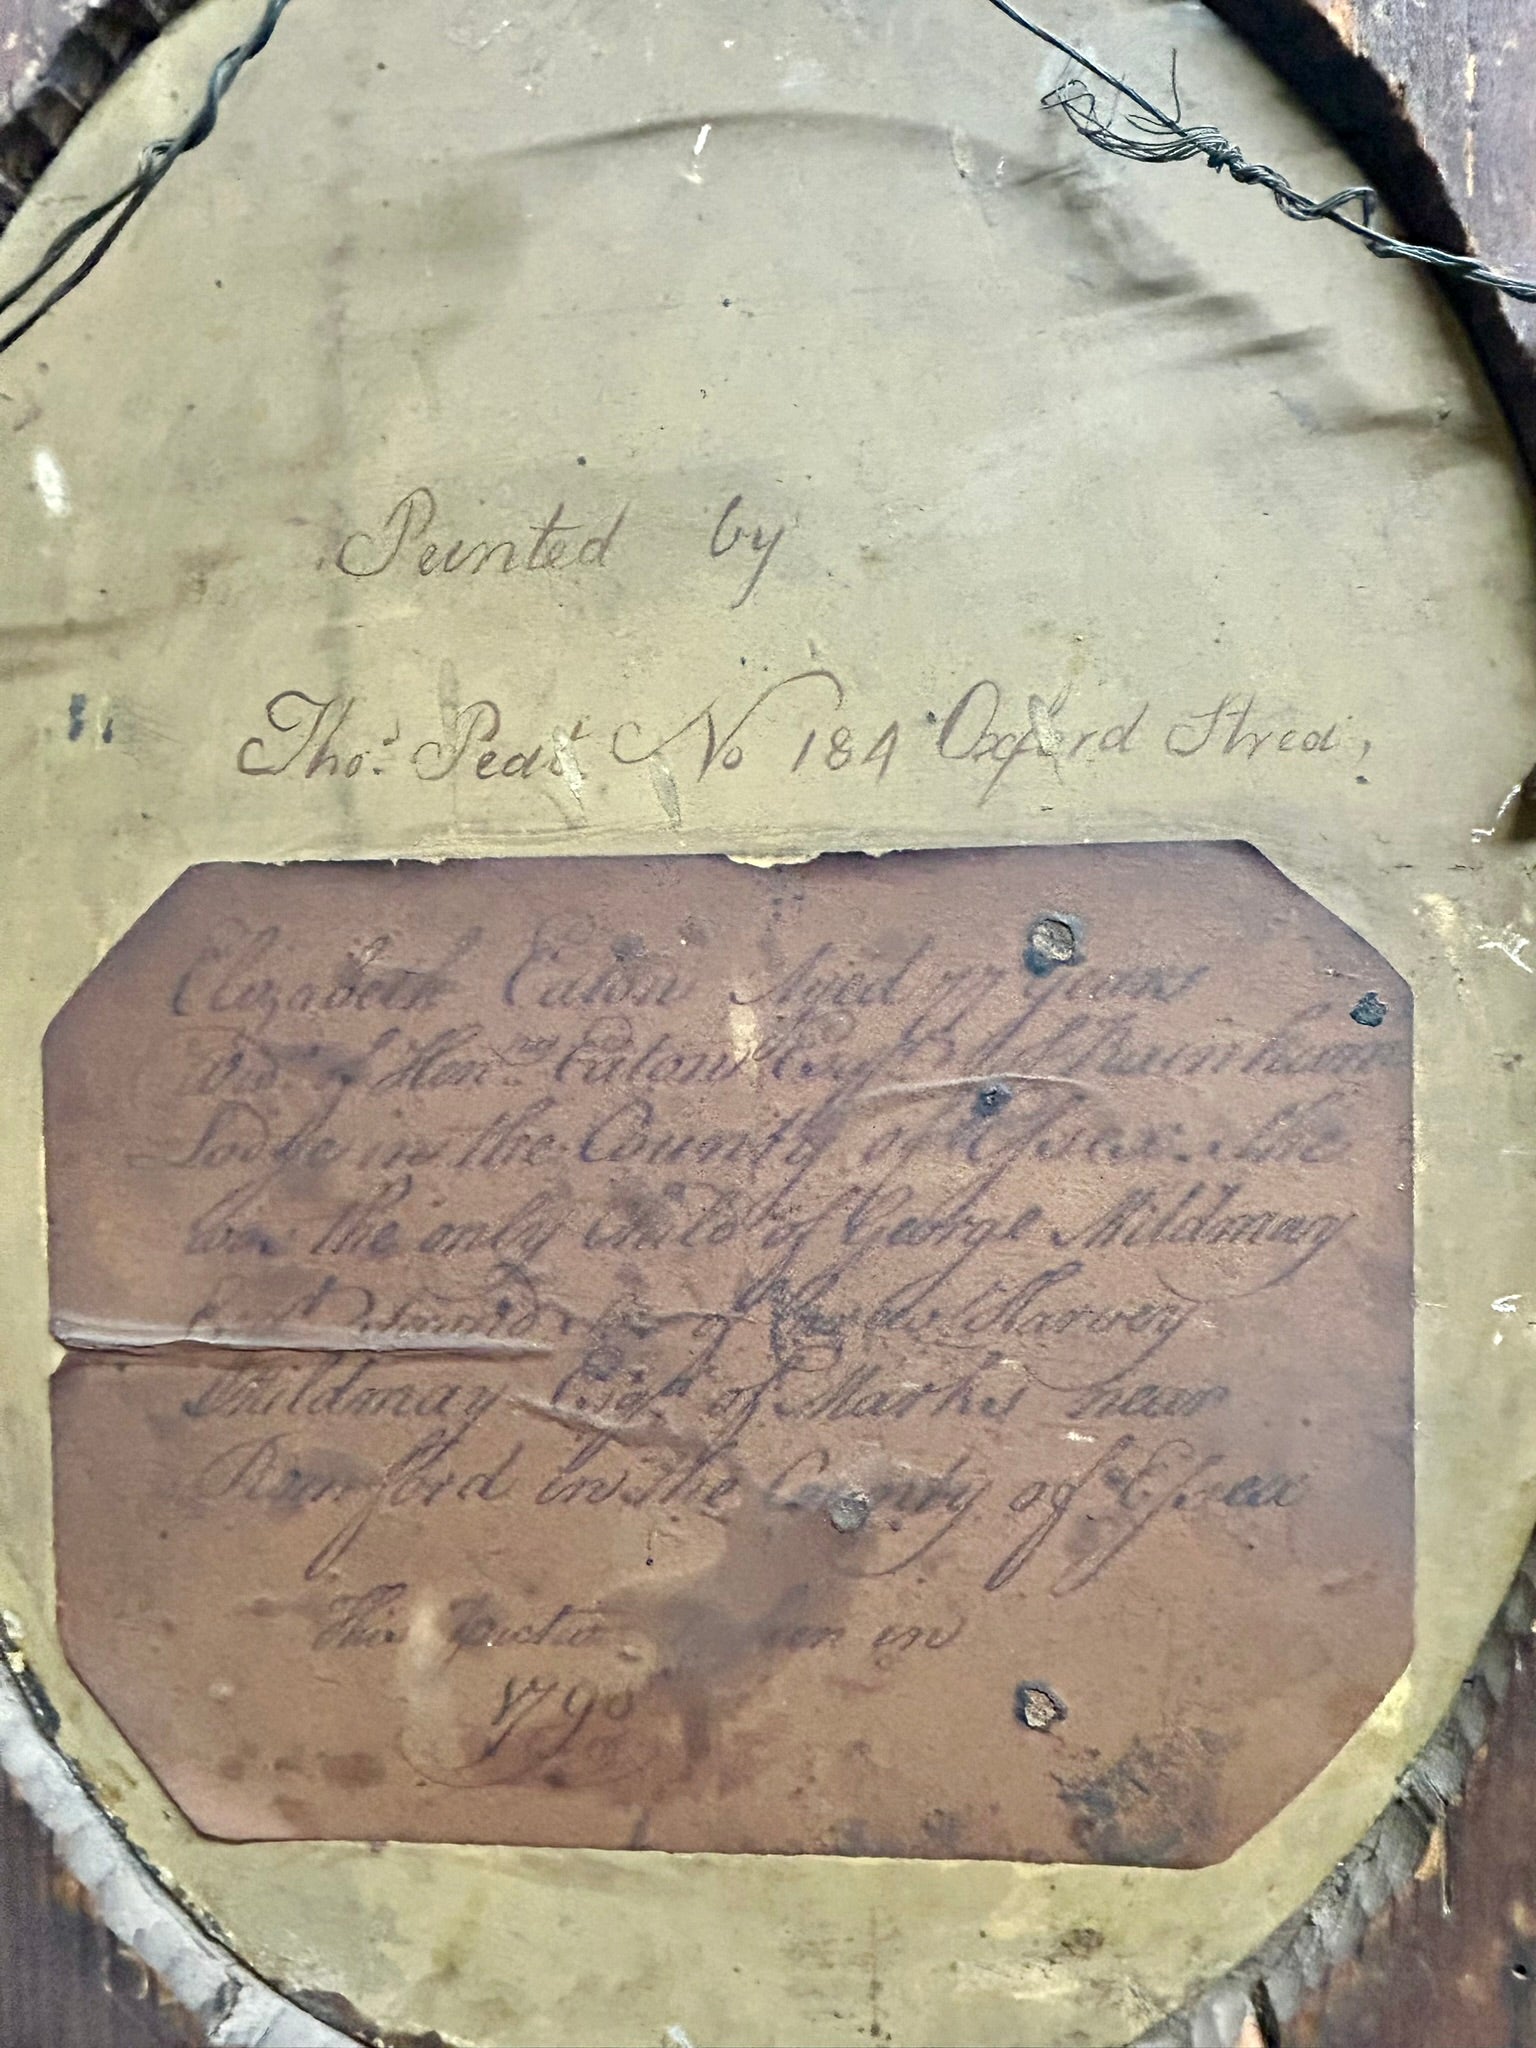 Painted by
Thos. Peat No 184 Oxford Street,
Elizabeth Eaton Aged 77 years
Wid.w of Hen.ry Eaton Esq.r Rainham
Lodge in the County of Essex. She
was the only child of George Mildmay
Esq.r of Harvey
Mildmay Esq.r of Marks near
Romford in the County of Essex
This pictu in
179